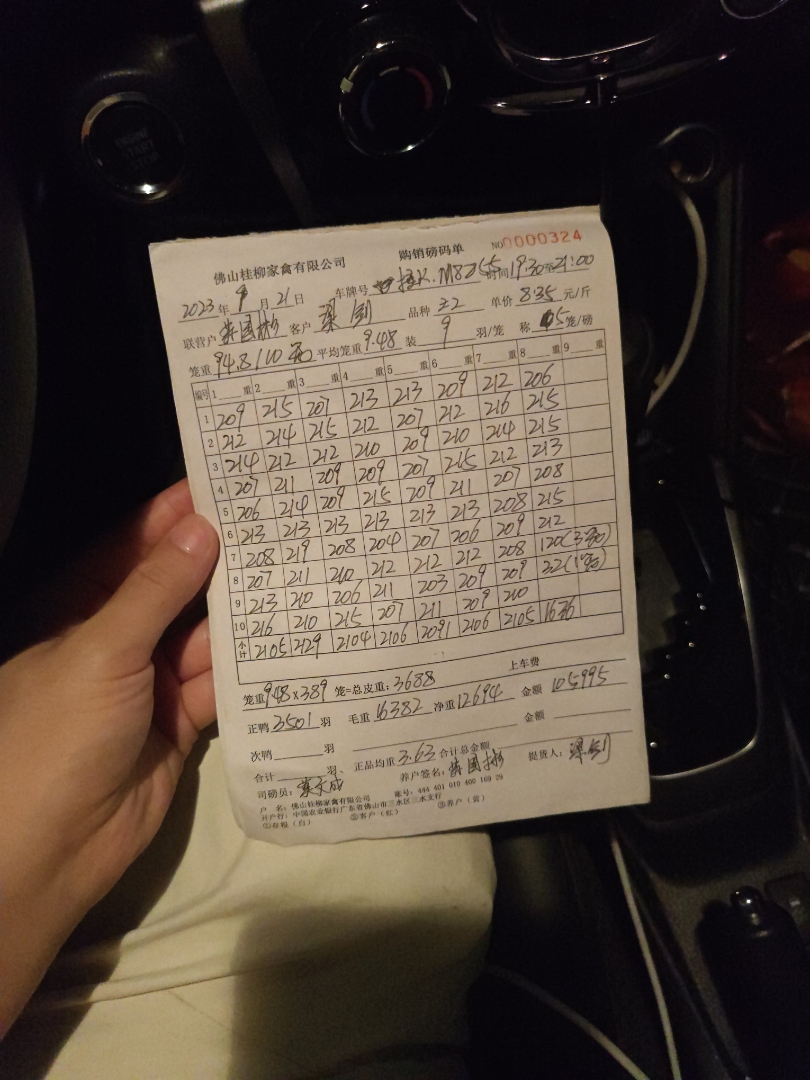 佛山桂柳家禽有限公司 购销磅码单 NO0000324
2023年9月21日 车牌号 M8Z55 时间19:30至21:00
联营户 客户 梁剑 品种 单价8.35元/斤
笼重94.8/10 平均笼重9.48 装9羽/笼 称5笼/磅
编号 1 重 2 重 3 重 4 重 5 重 6 重 7 重 8 重 9 重
1 209 215 207 213 213 209 212 206
2 212 214 215 212 207 212 216 215
3 214 212 212 210 209 210 214 215
4 207 211 209 209 207 215 212 213
5 206 214 209 215 209 211 207 208
6 213 213 213 213 213 213 208 215
7 208 219 208 204 207 206 209 212
8 207 211 210 212 212 212 208 120(3笼)
9 213 210 206 211 203 209 209 32(1笼)
10 216 210 215 207 211 209 210
小计 2105 2129 2104 2106 2091 2106 2105 1636
上车费
笼重9.48×389笼=总皮重:3688
正鸭3501羽 毛重16382 净重12694 金额105995
次鸭 羽 金额
合计 羽、 正品均重3.63 合计总金额
司磅员: 养户签名: 提货人:梁剑
户 名:佛山桂柳家禽有限公司 账号:444 401 010 400 169 29
开户行:中国农业银行广东省佛山市三水区三水支行
①存根(白) ②客户(红) ③养户(黄)
ENGINE
START
STOP